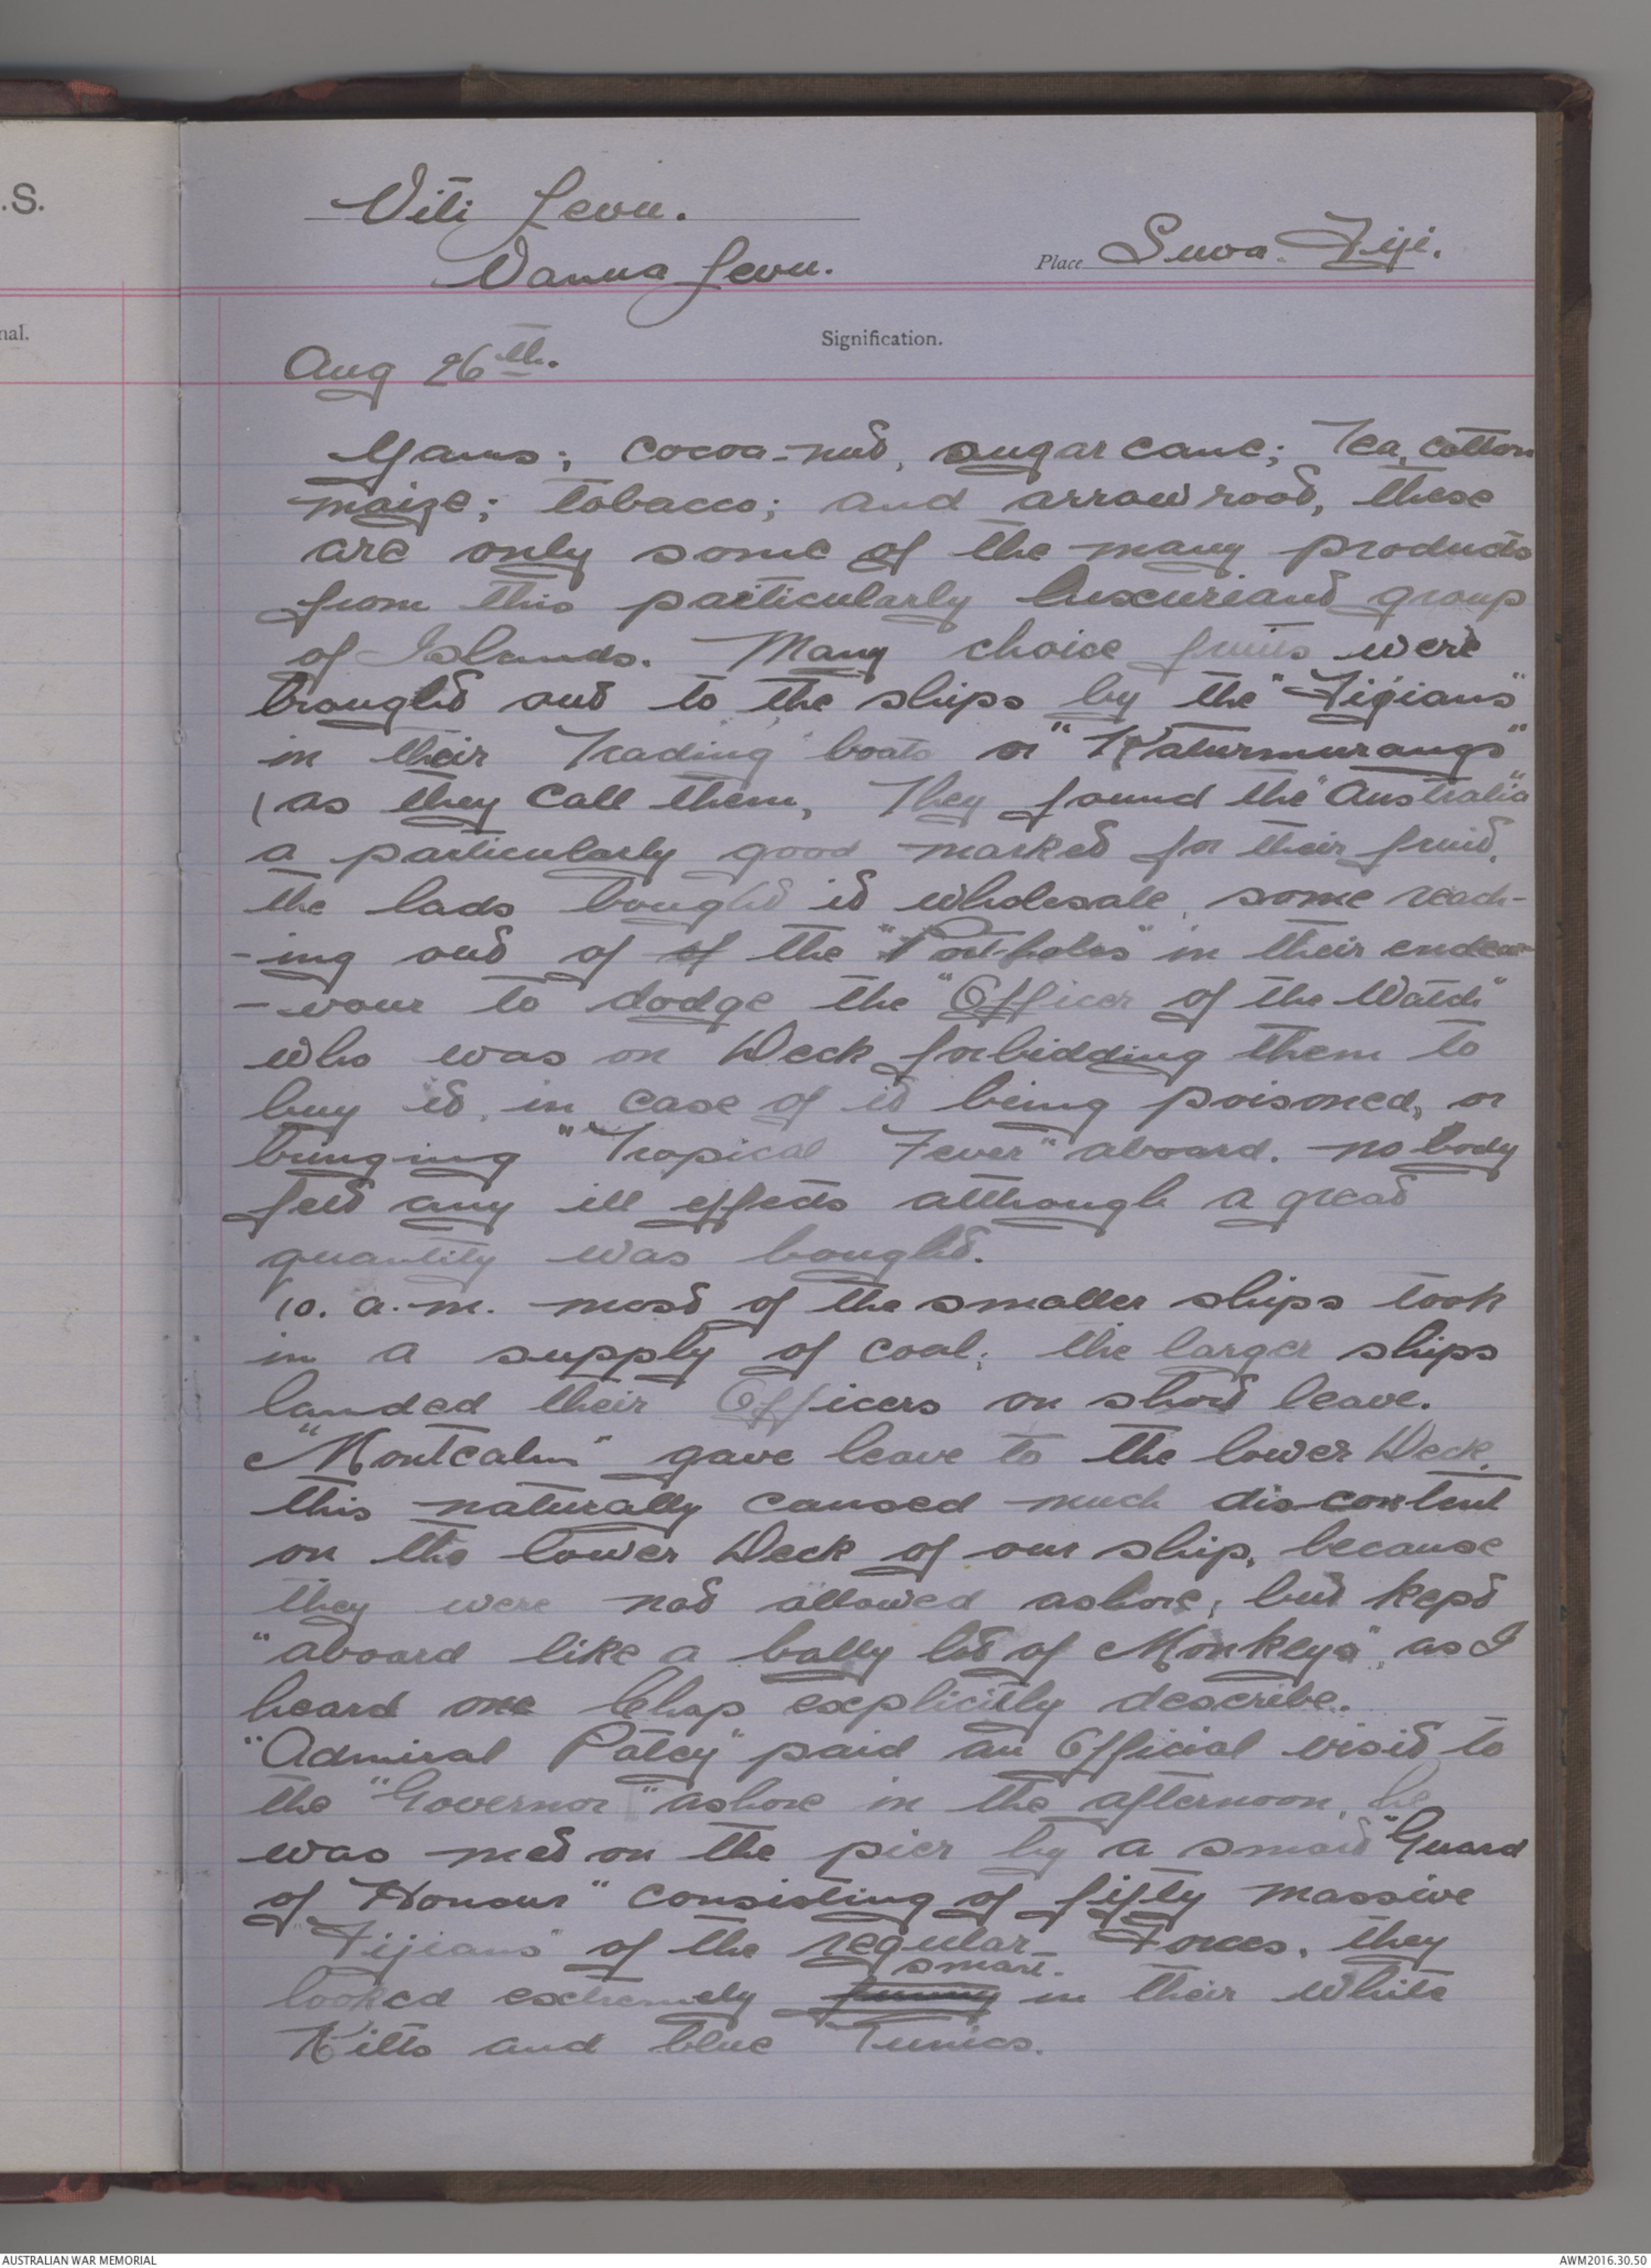 .S.
Viti Levu.
Vanua Levu.
Place Suva. Fiji.
nal.
Signification.
Aug 26th.
Yams; cocoa-nut, sugar cane; Tea, cotton
maize; tobacco; and arrowroot, these
are only some of the many products
from this particularly luxuriant group
of Islands. Many choice fruits were
brought out to the ships by the "Fijians"
in their Trading boats or "Katurmurangs"
(as they call them, They found the "Australia"
a particularly good market for their fruit,
the lads bought it wholesale, some reach-
-ing out of of the "Portholes" in their endea-
-vour to dodge the "Officer of the Watch"
who was on Deck forbidding them to
buy it, in case of it being poisoned, or
bringing "Tropical Fever" aboard. no body
felt any ill effects although a great
quantity was bought.
10. a.m. most of the smaller ships took
in a supply of coal; the larger ships
landed their Officers on short leave.
"Montcalm" gave leave to the lower Deck,
this naturally caused much dis-content
on the lower Deck of our ship, because
they were not allowed ashore; but kept
"aboard like a bally lot of Monkeys", as I
heard one Chap explicitly describe.
"Admiral Patey" paid an Official visit to
the "Governor" ashore in the afternoon, he
was met on the pier by a smart "Guard
of Honour" consisting of fifty massive
"Fijians" of the regular Forces, they
smart.
looked extremely funny in their white
Kilts and blue Tunics.
AUSTRALIAN WAR MEMORIAL
AWM2016.30.50